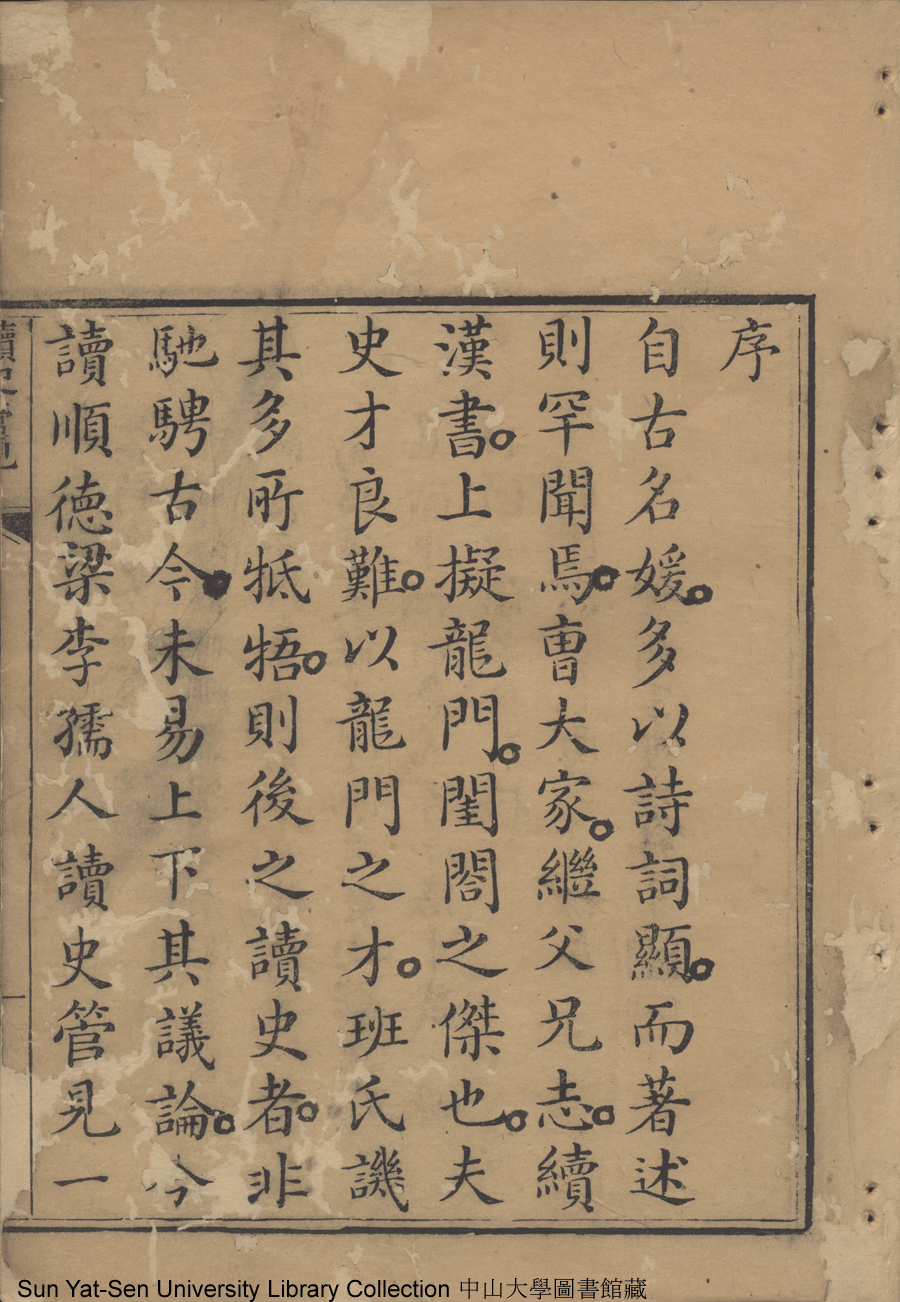 序
自古名媛。多以詩詞顯。而著述
則罕聞焉。曹大家。繼父兄志。續
漢書。上擬龍門。閨閤之傑也。夫
史才良難。以龍門之才。班氏譏
其多所牴牾。則後之讀史者。非
馳騁古今。未易上下其議論。今
讀順德梁李孺人讀史管見一
讀史管見
一
Sun Yat-Sen University Library Collection 中山大學圖書館藏